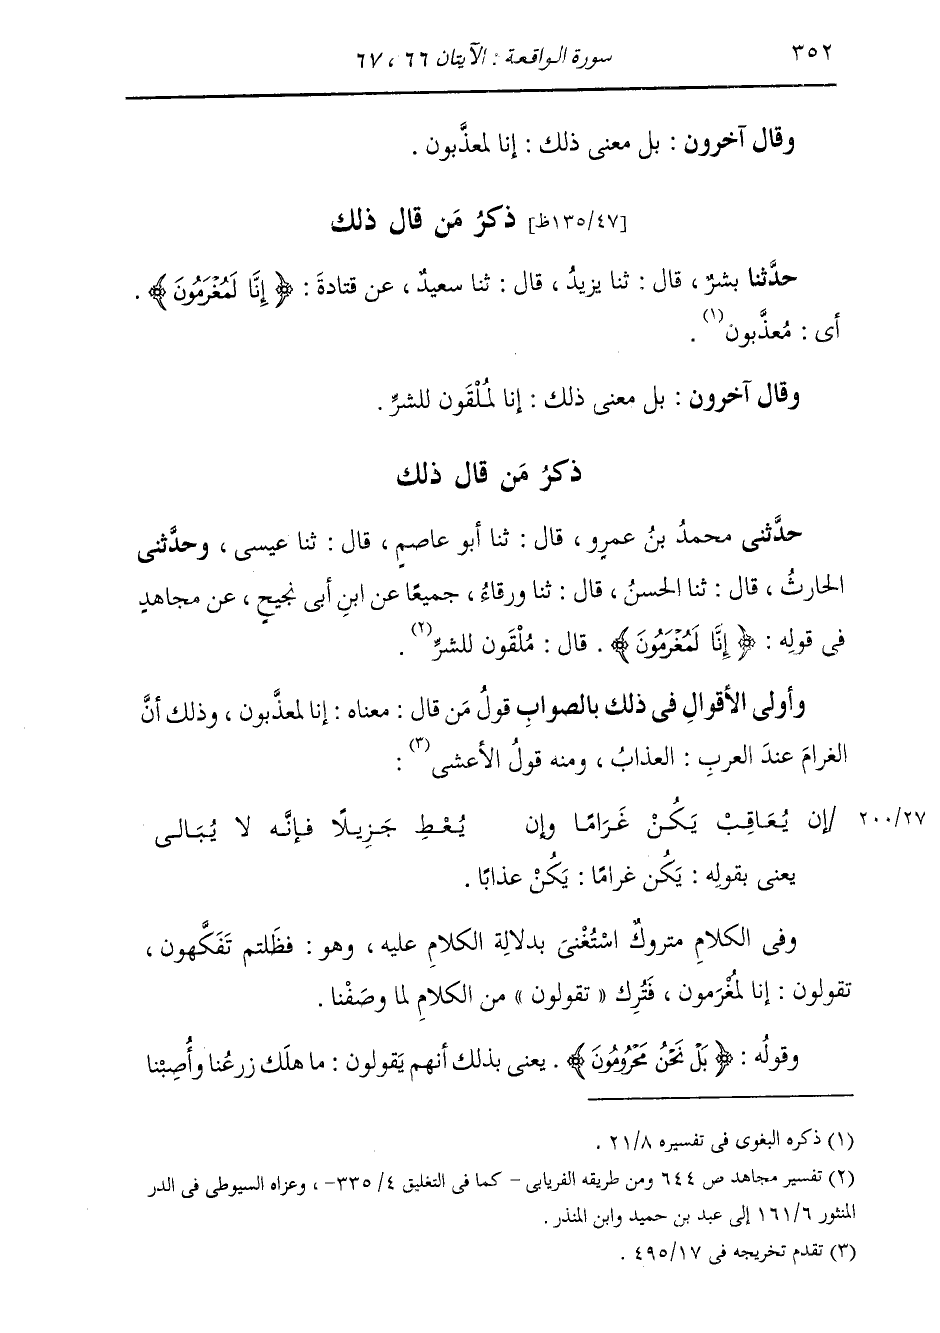 ٣٥٢ سورة الواقعة : الآيتان ٦٦ ، ٦٧
وقال آخرون : بل معنى ذلك : إنا لمعذَّبون .
[١٣٥/٤٧ظ] ذكرُ مَن قال ذلك
حدَّثنا بشرٌ ، قال : ثنا يزيدُ ، قال : ثنا سعيدٌ ، عن قتادةَ : ﴿ إِنَّا لَمُغْرَمُونَ ﴾ .
أى : مُعذَّبون(١) .
وقال آخرون : بل معنى ذلك : إنا لمُلْقَون للشرِّ .
ذكرُ مَن قال ذلك
حدَّثنى محمدُ بنُ عمرٍو ، قال : ثنا أبو عاصمٍ ، قال : ثنا عيسى ، وحدَّثنى
الحارثُ ، قال : ثنا الحسنُ ، قال : ثنا ورقاءُ ، جميعًا عن ابنِ أبى نجيحٍ ، عن مجاهدٍ
فى قولِه : ﴿ إِنَّا لَمُغْرَمُونَ ﴾ . قال : مُلْقَون للشرِّ(٢) .
وأولى الأقوالِ فى ذلك بالصوابِ قولُ مَن قال : معناه : إنا لمعذَّبون ، وذلك أنَّ
الغرامَ عندَ العربِ : العذابُ ، ومنه قولُ الأعشى(٣) :
٢٠٠/٢٧ /إن يُعَاقِبْ يَكُنْ غَرَامًا وإن يُعْطِ جَزِيلًا فإنَّه لا يُبَالى
يعنى بقولِه : يَكُن غرامًا : يَكُنْ عذابًا .
وفى الكلامِ متروكٌ اسْتُغْنىَ بدلالةِ الكلامِ عليه ، وهو : فظَلتم تَفَكَّهون ،
تقولون : إنا لمُغْرَمون ، فَتُرِك « تقولون » من الكلامِ لما وصَفْنا .
وقولُه : ﴿ بَلْ نَحْنُ مَحْرُومُونَ ﴾ . يعنى بذلك أنهم يَقولون : ما هلَك زرعُنا وأُصِبْنا
(١) ذكره البغوى فى تفسيره ٢١/٨ .
(٢) تفسير مجاهد ص ٦٤٤ ومن طريقه الفريابى - كما فى التغليق ٤/ ٣٣٥- ، وعزاه السيوطى فى الدر
المنثور ١٦١/٦ إلى عبد بن حميد وابن المنذر .
(٣) تقدم تخريجه فى ٤٩٥/١٧ .